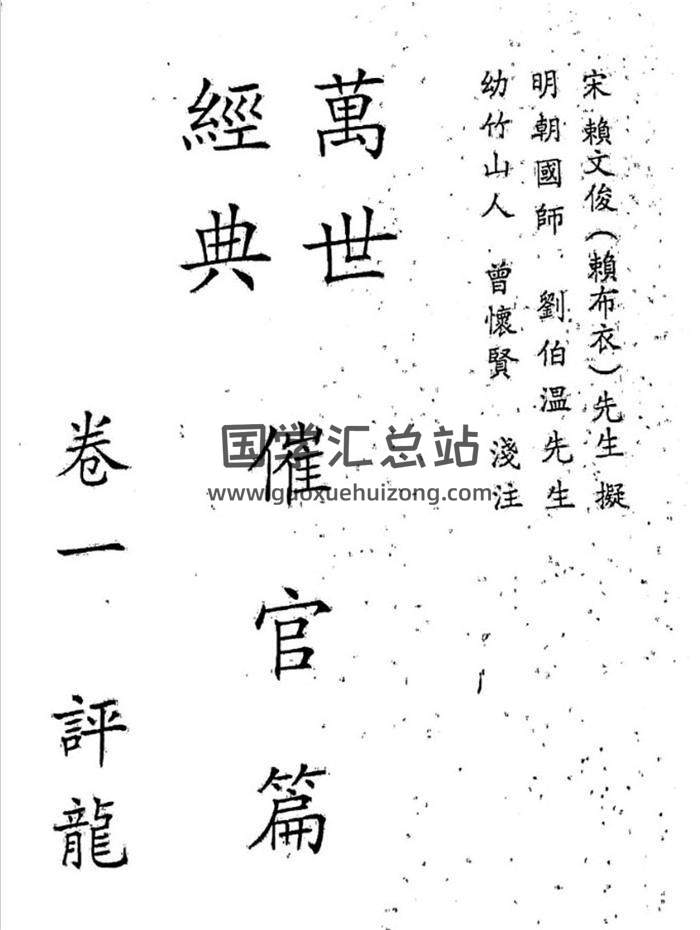 宋 賴文俊（賴布衣）先生 擬
明朝國師 劉伯溫先生
幼竹山人 曾懷賢 淺注
萬世
經典
催官篇
卷一 評龍
国学汇总站
www.guoxuehuizong.com